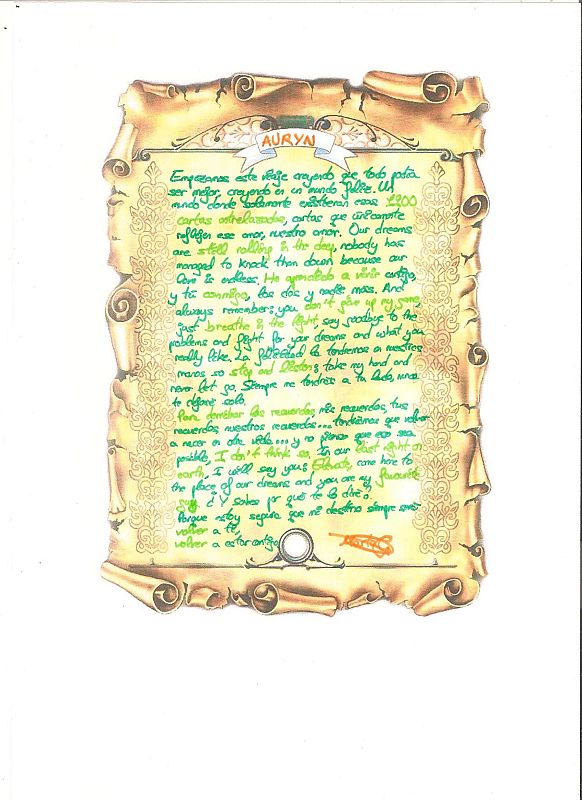 AURYN
Empezamos este viaje creyendo que todo podía
ser mejor, creyendo en un mundo feliz. Un
mundo donde solamente existieran esas 1900
cartas entrelazadas, cartas que únicamente
reflejen ese amor, nuestro amor. Our dreams
are still rolling in the deep, nobody has
managed to knock them down because our
love is endless. He aprendido a vivir contigo,
y tú conmigo, los dos y nadie más. And
always remember, you don't give up my game,
just breathe in the light, say goodbye to the
problems and fight for your dreams and what you
really like. La felicidad la tendremos en nuestras
manos so stop and listen; take my hand and
never let go. Siempre me tendrás a tu lado, nunca
te dejaré solo.
Para derribar los recuerdos, mis recuerdos, tus
recuerdos, nuestros recuerdos... tendríamos que volver
a nacer en otra vida... y no pienso que eso sea
posible, I don't think so. In our last night on
earth, I will say you; Elevate, come here to
the place of our dreams and you are my favourite
guy. ¿Y sabes por qué te lo diré?
Porque estoy segura que mi destino siempre será
volver a ti,
volver a estar contigo.